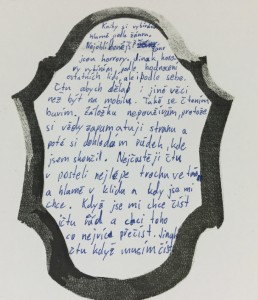 Knihy si vybírám
hlavně podle žánru.
Nejoblíbenější jsou
horrory, jinak
vybírám podle hodnocení
ostatních lidí, ale i podle sebe.
Čtu abych dělal i jiné věci
než být na mobilu. Také se čtením
bavím, záložku nepoužívám, protože
si vždy zapamatuji stranu a
poté si dohledám řádek, kde
jsem skončil. Nejčastěji čtu
v posteli nejlépe trochu ve tmě
a hlavně v klidu a kdy jse mi
chce. Když jse mi chce číst
čtu rád a chci toho
co nejvíce přečíst. Jinak
čtu když musím číst